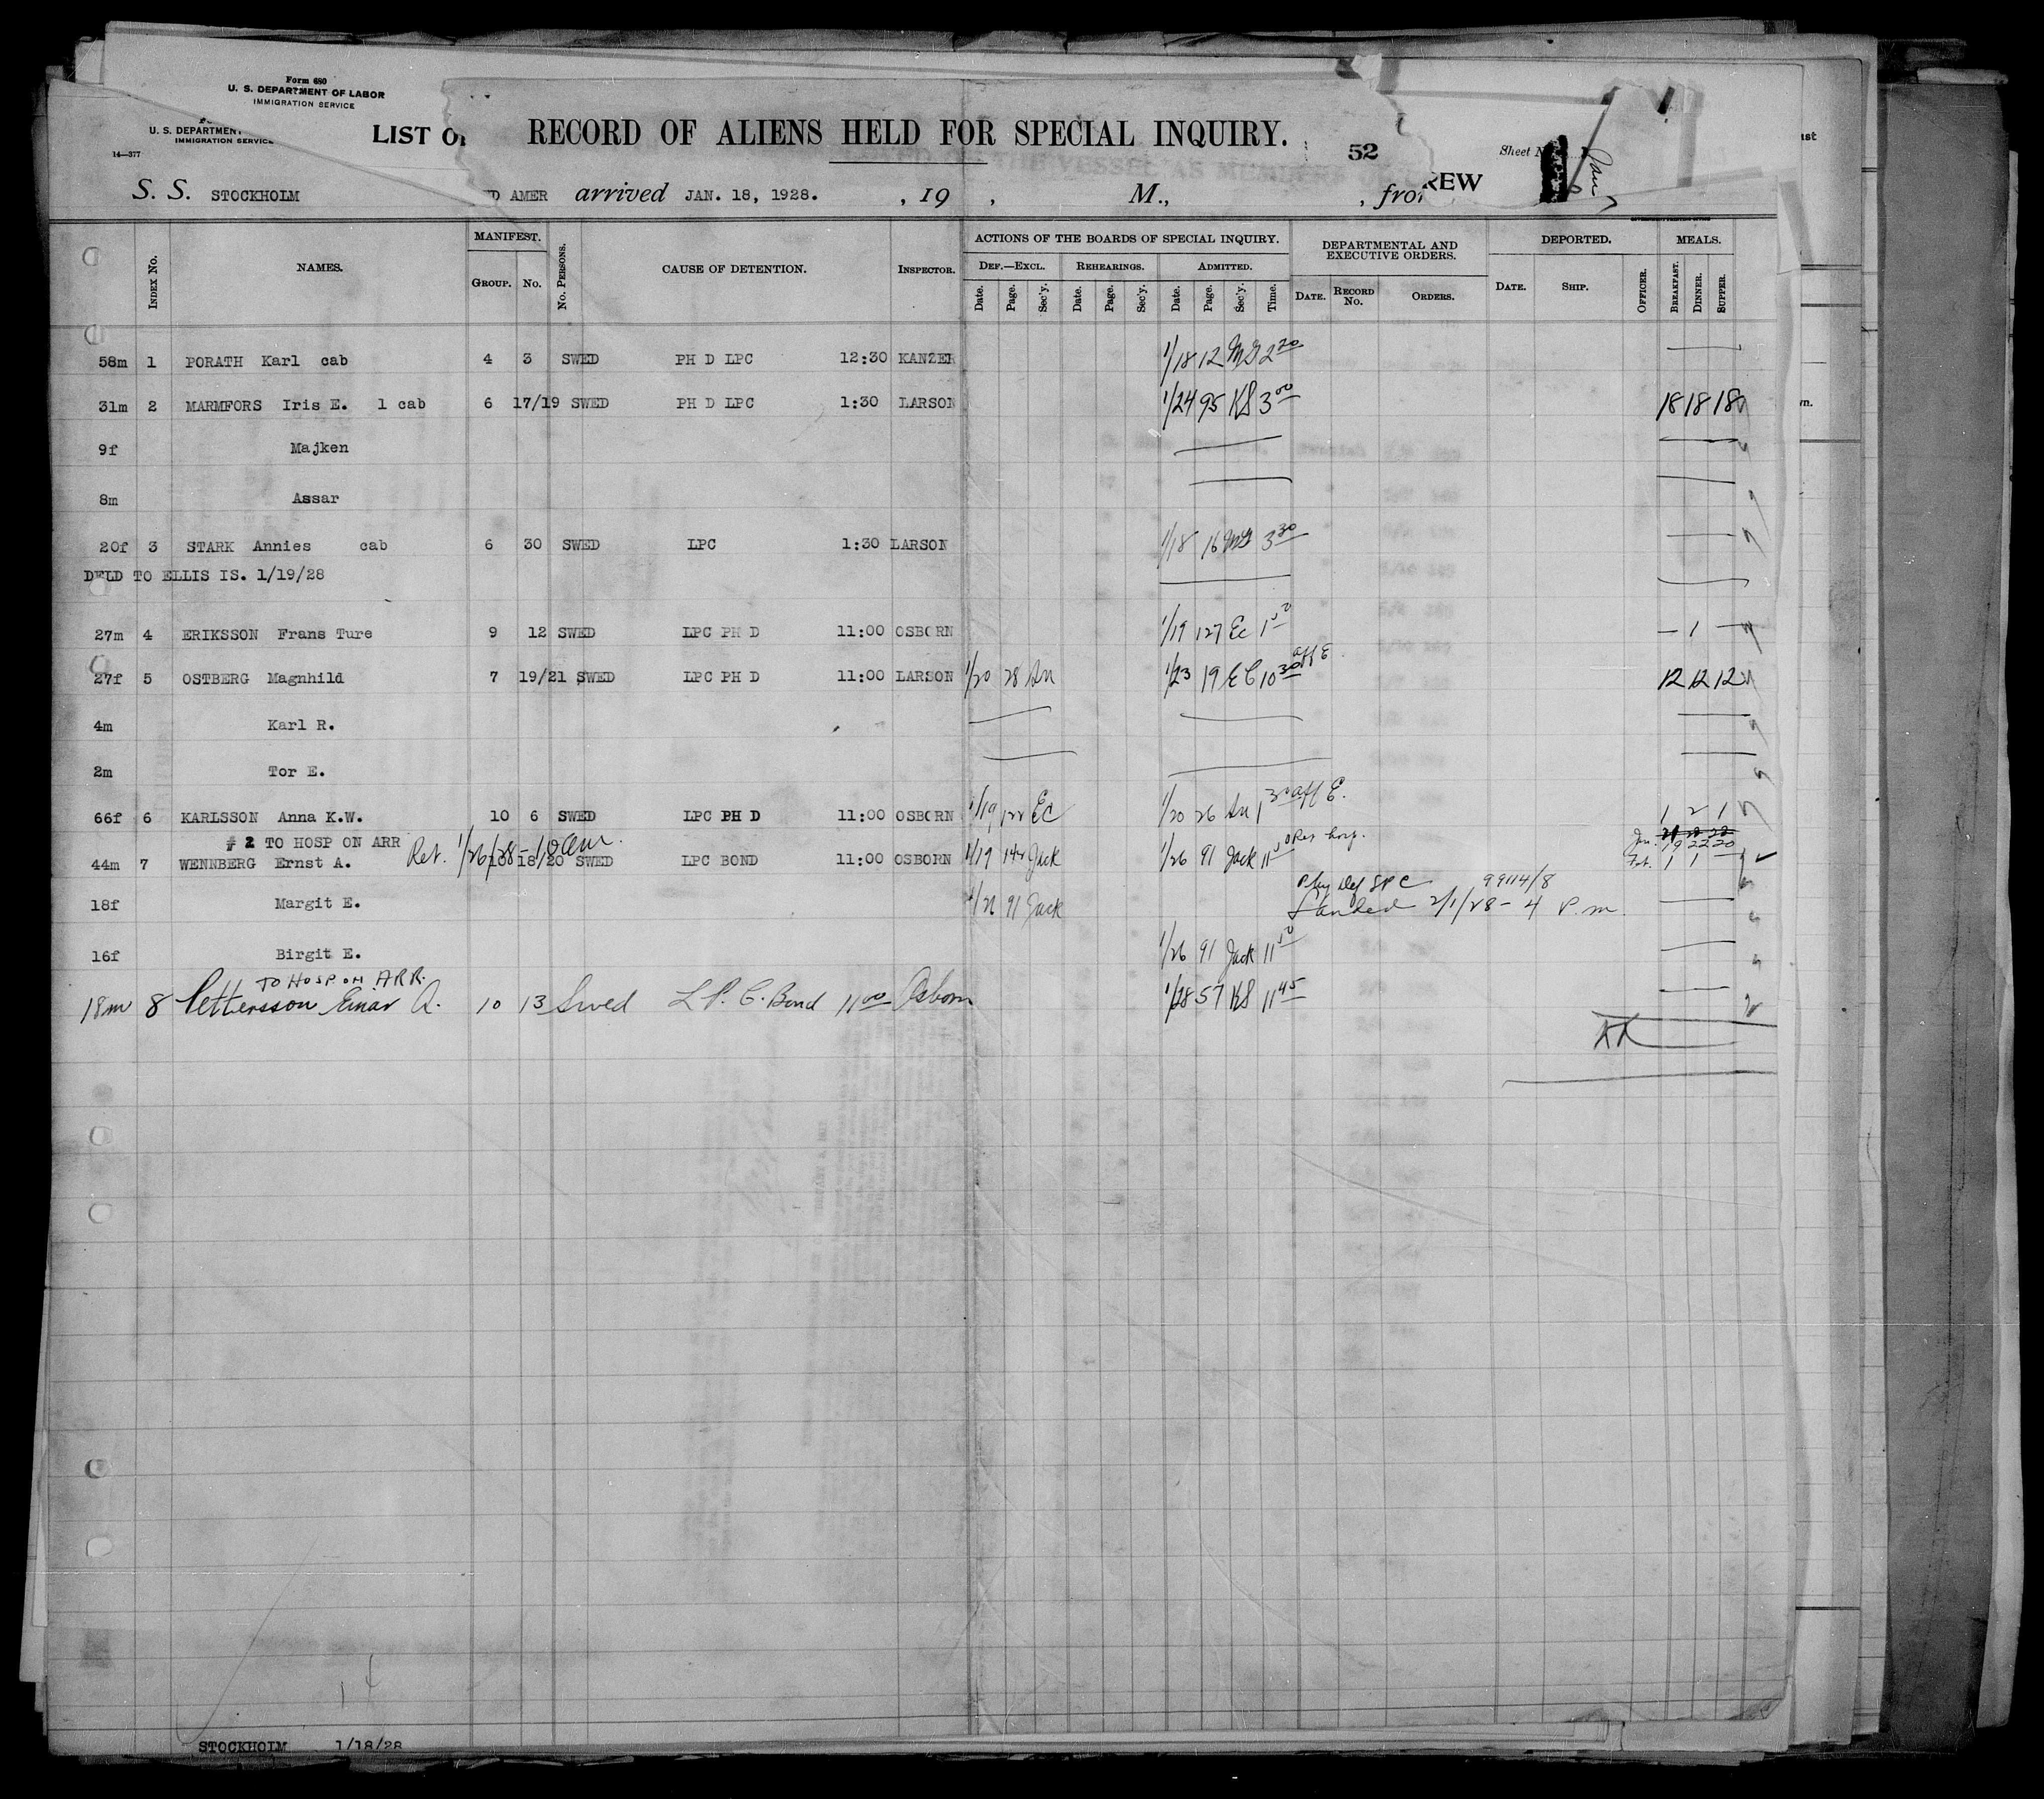 Form 680
U. S. DEPARTMENT OF LABOR
IMMIGRATION SERVICE
U. S. DEPARTMENT
IMMIGRATION SERVICE
14—377
LIST OF
RECORD OF ALIENS HELD FOR SPECIAL INQUIRY.
52
Sheet N
REW
S. S. STOCKHOLM D AMER arrived JAN. 18, 1928. , 19 , M., , from
INDEX No. NAMES. MANIFEST. GROUP. No. No. PERSONS. CAUSE OF DETENTION. INSPECTOR. ACTIONS OF THE BOARDS OF SPECIAL INQUIRY. DEF.—EXCL. Date. Page. Sec'y. REHEARINGS. Date. Page. Sec'y. ADMITTED. Date. Page. Sec'y. Time. DEPARTMENTAL AND EXECUTIVE ORDERS. DATE. RECORD No. ORDERS. DEPORTED. DATE. SHIP. OFFICER. MEALS. BREAKFAST. DINNER. SUPPER.
58m 1 PORATH Karl cab 4 3 SWED PH D LPC 12:30 KANZER 1/18 12 MG 2 20
31m 2 MARMFORS Iris E. 1 cab 6 17/19 SWED PH D LPC 1:30 LARSON 1/24 95 KS 3 00 18 18 18
9f Majken
8m Assar
20f 3 STARK Annies cab 6 30 SWED LPC 1:30 LARSON 1/18 16 MG 3 30
DELD TO ELLIS IS. 1/19/28
27m 4 ERIKSSON Frans Ture 9 12 SWED LPC PH D 11:00 OSBORN 1/19 127 EC 1 50 — 1 —
27f 5 OSTBERG Magnhild 7 19/21 SWED LPC PH D 11:00 LARSON 1/20 28 1/23 19 EC 10 30 aff E 12 12 12
4m Karl R.
2m Tor E.
66f 6 KARLSSON Anna K.W. 10 6 SWED LPC PH D 11:00 OSBORN 1/19 122 EC 1/20 26 1 30 aff E. 1 2 1
# 2 TO HOSP ON ARR Ret. 1/26/28 – 10 am.
44m 7 WENNBERG Ernst A. 10 18/20 SWED LPC BOND 11:00 OSBORN 1/19 142 Jack 1/26 91 Jack 11 50 Jan. 19 22 20 Feb. 1 1 —
18f Margit E. 1/26 91 Jack 99114/8
Landed 2/1/28 – 4 P.m.
16f Birgit E. 1/26 91 Jack 11 50
TO HOSP ON ARR.
18m 8 Pettersson Einar A. 10 13 Swed L. P. C. Bond 11 00 Osborn 1/28 57 KS 11 45
14
STOCKHOLM 1/18/28